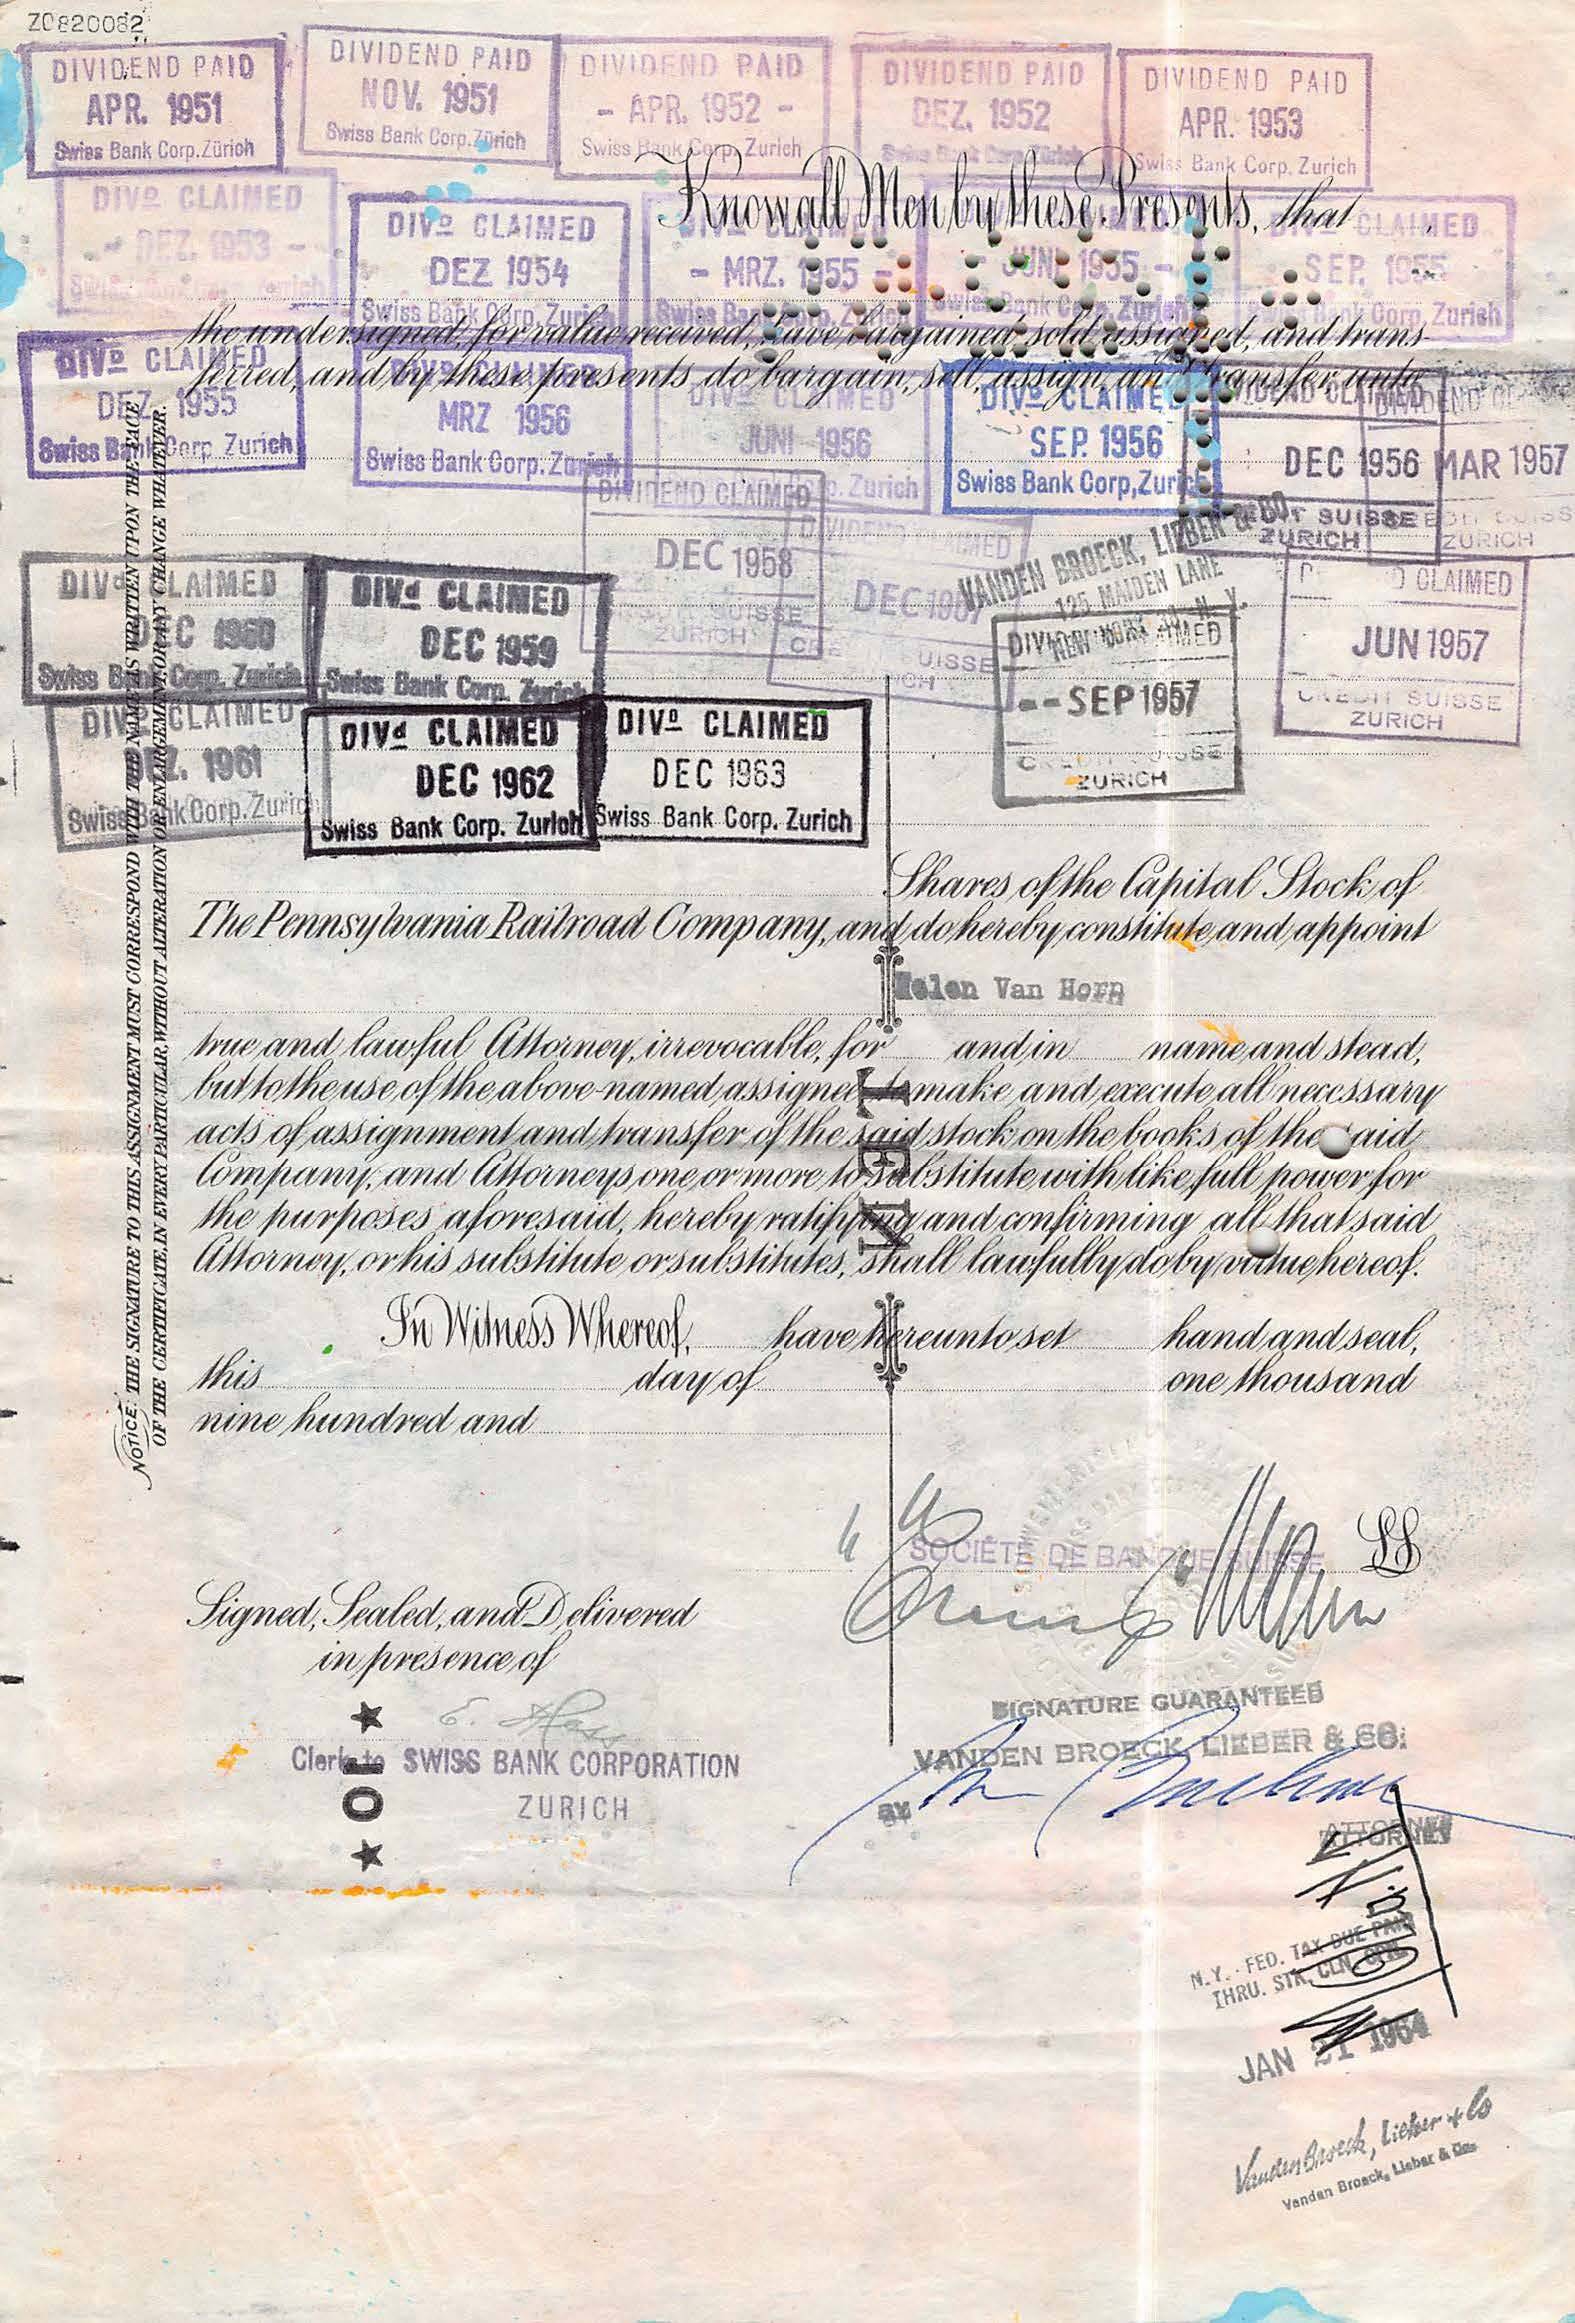 Z0820082
DIVIDEND PAID
APR. 1951
Swiss Bank Corp. Zürich
DIVIDEND PAID
NOV. 1951
Swiss Bank Corp. Zürich
DIVIDEND PAID
- APR. 1952 -
Swiss Bank Corp. Zurich
DIVIDEND PAID
DEZ. 1952
Swiss Bank Corp. Zürich
DIVIDEND PAID
APR. 1953
Swiss Bank Corp. Zurich
DIVD CLAIMED
- DEZ. 1953 -
DIVD CLAIMED
DEZ 1954
Swiss Bank Corp. Zurich
DIVD CLAIMED
- MRZ. 1955 -
Swiss Bank Corp. Zurich
- JUNI 1955 -
Swiss Bank Corp. Zurich
DIVD CLAIMED
SEP. 1955
Swiss Bank Corp. Zurich
Know all Men by these Presents, that
the undersigned, for value received, have bargained, sold, assigned, and trans-
ferred, and by these presents do bargain, sell, assign, and transfer unto
DIVD CLAIMED
DEZ. 1955
Swiss Bank Corp. Zurich
DIVD CLAIMED
MRZ 1956
Swiss Bank Corp. Zurich
DIVD CLAIMED
JUNI 1956
Corp. Zurich
DIVD CLAIMED
SEP. 1956
Swiss Bank Corp, Zurich
DIVIDEND CLAIMED
DEC 1956
CREDIT SUISSE
ZURICH
DIVIDEND CLAIMED
MAR 1957
CREDIT SUISSE
ZURICH
DIVIDEND CLAIMED
DEC 1958
CREDIT SUISSE
ZURICH
DIVIDEND CLAIMED
DEC 1957
CREDIT SUISSE
ZURICH
VANDEN BROECK, LIEBER & CO.
125 MAIDEN LANE
NEW YORK N. Y.
DIVIDEND CLAIMED
-- SEP 1957
CREDIT SUISSE
ZURICH
DIVIDEND CLAIMED
JUN 1957
CREDIT SUISSE
ZURICH
DIVd CLAIMED
DEC 1960
Swiss Bank Corp. Zurich
DIVd CLAIMED
DEC 1959
Swiss Bank Corp. Zurich
DIVD CLAIMED
DEZ. 1961
Swiss Bank Corp. Zurich
DIVd CLAIMED
DEC 1962
Swiss Bank Corp. Zurich
DIVD CLAIMED
DEC 1963
Swiss Bank Corp. Zurich
NOTICE: THE SIGNATURE TO THIS ASSIGNMENT MUST CORRESPOND WITH THE NAME AS WRITTEN UPON THE FACE
OF THE CERTIFICATE, IN EVERY PARTICULAR, WITHOUT ALTERATION OR ENLARGEMENT, OR ANY CHANGE WHATEVER.
Shares of the Capital Stock of
The Pennsylvania Railroad Company, and do hereby constitute and appoint
Helen Van Horn
true and lawful Attorney, irrevocable, for and in name and stead,
but to the use of the above-named assignee to make and execute all necessary
acts of assignment and transfer of the said stock on the books of the said
Company, and Attorneys one or more to substitute with like full power for
the purposes aforesaid, hereby ratifying and confirming all that said
Attorney, or his substitute or substitutes, shall lawfully do by virtue hereof.
In Witness Whereof, have hereunto set hand and seal,
this day of one thousand
nine hundred and
SOCIÉTÉ DE BANQUE SUISSE LS
Signed, Sealed, and Delivered
in presence of
Clerk to SWISS BANK CORPORATION
ZURICH
★ 10 ★
SIGNATURE GUARANTEED
VANDEN BROECK, LIEBER & CO.
BY
ATTORNEY
N.Y. - FED. TAX DUE PAID
THRU. STK. CLN. CPN.
JAN 21 1964
Vanden Broeck, Lieber & Co
Vanden Broeck, Lieber & Co.